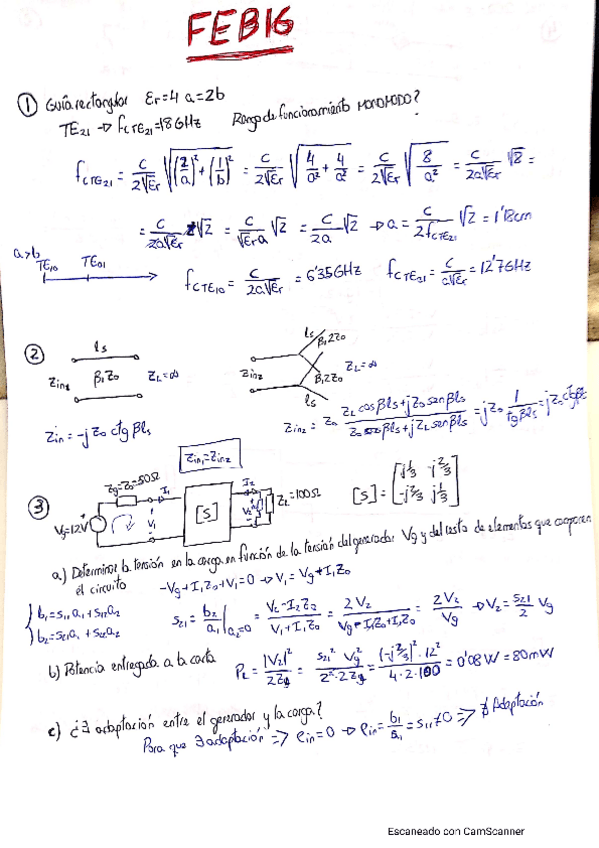 FEB16
① Guía rectangular εr=4 a=2b
TE21 → fCTE21=18GHz Rango de funcionamiento MONOMODO?
fCTE21 = C/2√εr √((2/a)²+(1/b)²) = C/2√εr √(4/a²+4/a²) = C/2√εr √(8/a²) = C/2a√εr √8 =
= C/2a√εr 2√2 = C/√εr a √2 = C/2a √2 → a = C/2fCTE21 √2 = 1'18cm
a>b
TE10 TE01
fCTE10 = C/2a√εr = 6'35GHz fCTE21 = C/a√εr = 12'7GHz
②
ls
Zin1 β,Z0 ZL=∞
ls β,2Z0
Zin2 ZL=∞
β,2Z0
ls
Zin = -j Z0 ctg βls
Zin2 = Z0 ZL cosβls+jZ0 senβls / Z0 cosβls+jZL senβls = jZ0 1/tgβls = jZ0 ctgβls
Zin1=Zin2
③
Zg=Z0=50Ω I1 I2
Vg=12V V1 [S] V2 ZL=100Ω
[S] = [j⅓ -j⅔
-j⅔ j⅓]
a) Determinar la tensión en la carga en función de la tensión del generador Vg y del resto de elementos que componen
el circuito
-Vg+I1Z0+V1=0 → V1=Vg+I1Z0
b1=S11a1+S12a2
b2=S21a1+S22a2
S21 = b2/a1 |a2=0 = V2-I2Z0/V1+I1Z0 = 2V2/Vg-I1Z0+I1Z0 = 2V2/Vg → V2 = S21/2 Vg
b) Potencia entregada a la carta
PL = |V2|²/2Zg = S21² Vg²/2²·2Zg = (-j⅔)²·12²/4·2·100 = 0'08W = 80mW
c) ¿∃ adaptación entre el generador y la carga?
Para que ∃ adaptación => ρin=0 → ρin = b1/a1 = S11≠0 => ∄ Adaptación
Escaneado con CamScanner